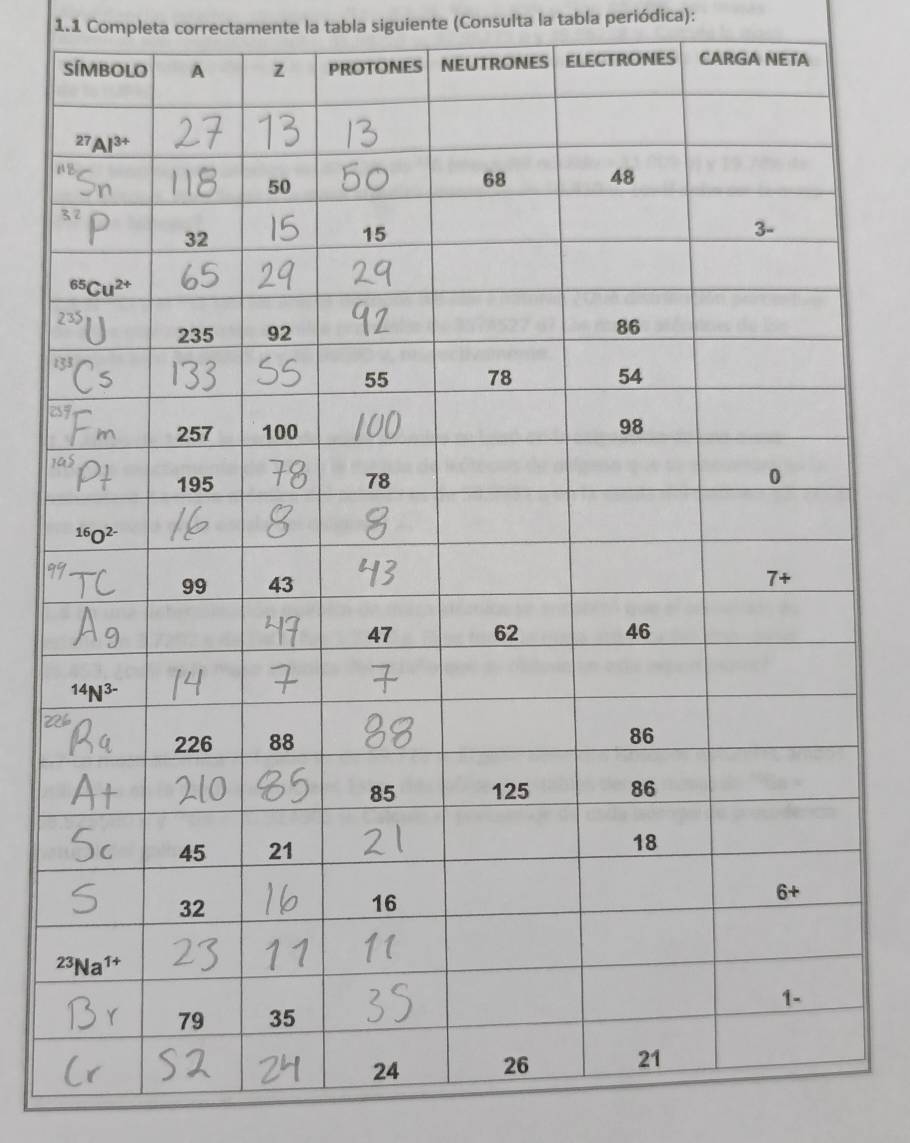 1.1 Completa correctamente la tabla siguiente (Consulta la tabla periódica):
SÍMBOLO A Z PROTONES NEUTRONES ELECTRONES CARGA NETA
²⁷Al³⁺ 27 13 13
¹¹⁸Sn 118 50 50 68 48
³²P 32 15 15 3-
⁶⁵Cu²⁺ 65 29 29
²³⁵U 235 92 92 86
¹³³Cs 133 55 55 78 54
Fm 257 100 100 98
¹⁹⁵Pt 195 78 78 0
¹⁶O²⁻ 16 8 8
⁹⁹TC 99 43 43 7+
Ag 47 47 62 46
¹⁴N³⁻ 14 7 7
²²⁶Ra 226 88 88 86
At 210 85 85 125 86
Sc 45 21 21 18
S 32 16 16 6+
²³Na¹⁺ 23 11 11
Br 79 35 35 1-
Cr 52 24 24 26 21